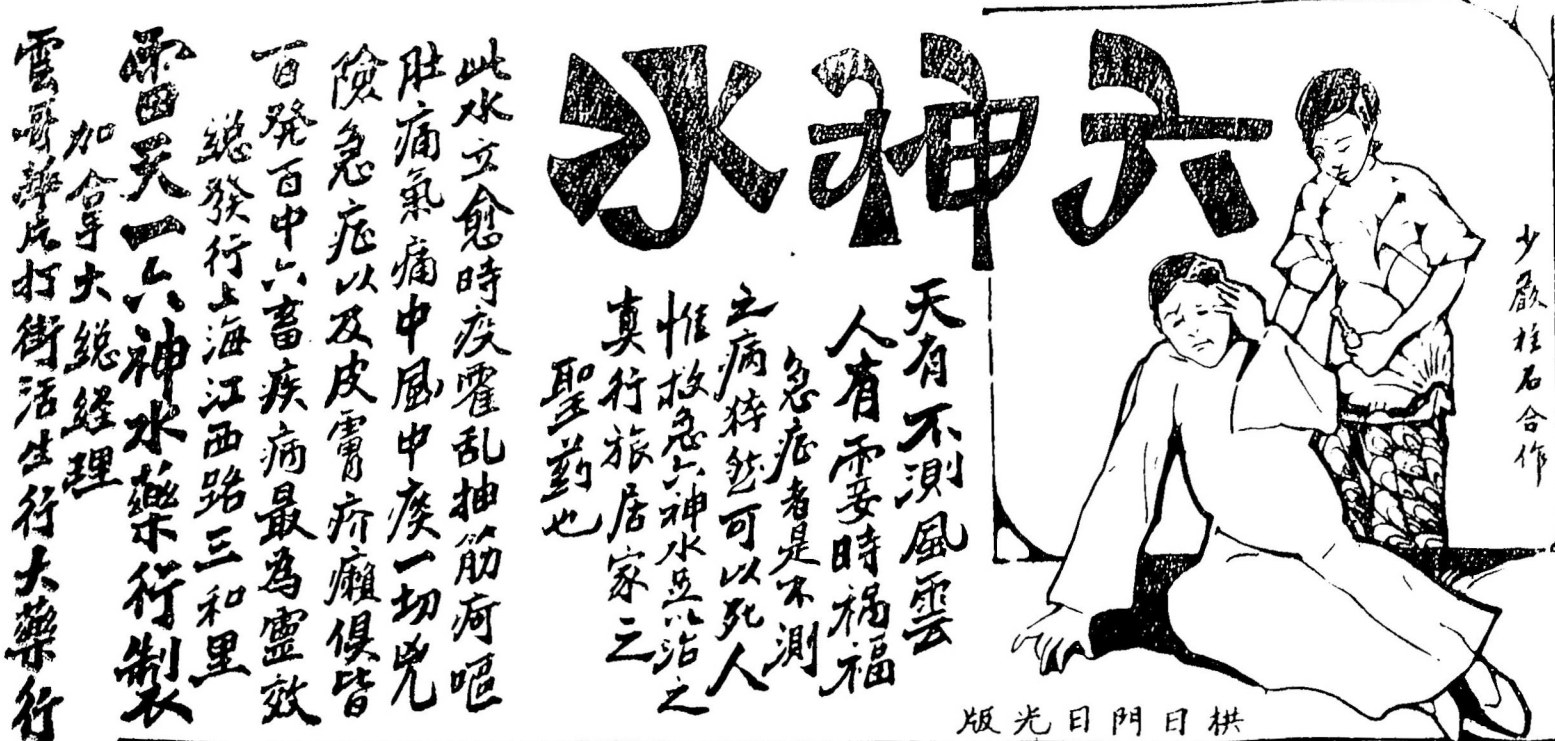 六神水
少嚴柱石合作
天有不測風雲
人有霎時禍福
急症者是不測
之病猝然可以死人
惟救急六神水足以治之
真行旅居家之
聖药也
此水立愈時疫霍乱抽筋疴嘔
肚痛氣痛中風中痰一切兇
險急症以及皮膚疥癩俱皆
百發百中六畜疾病最為靈效
総發行上海江西路三和里
雷天一六神水藥行製
加拿大総經理
雲哥華片打街活生行大藥行
栱日門日光版